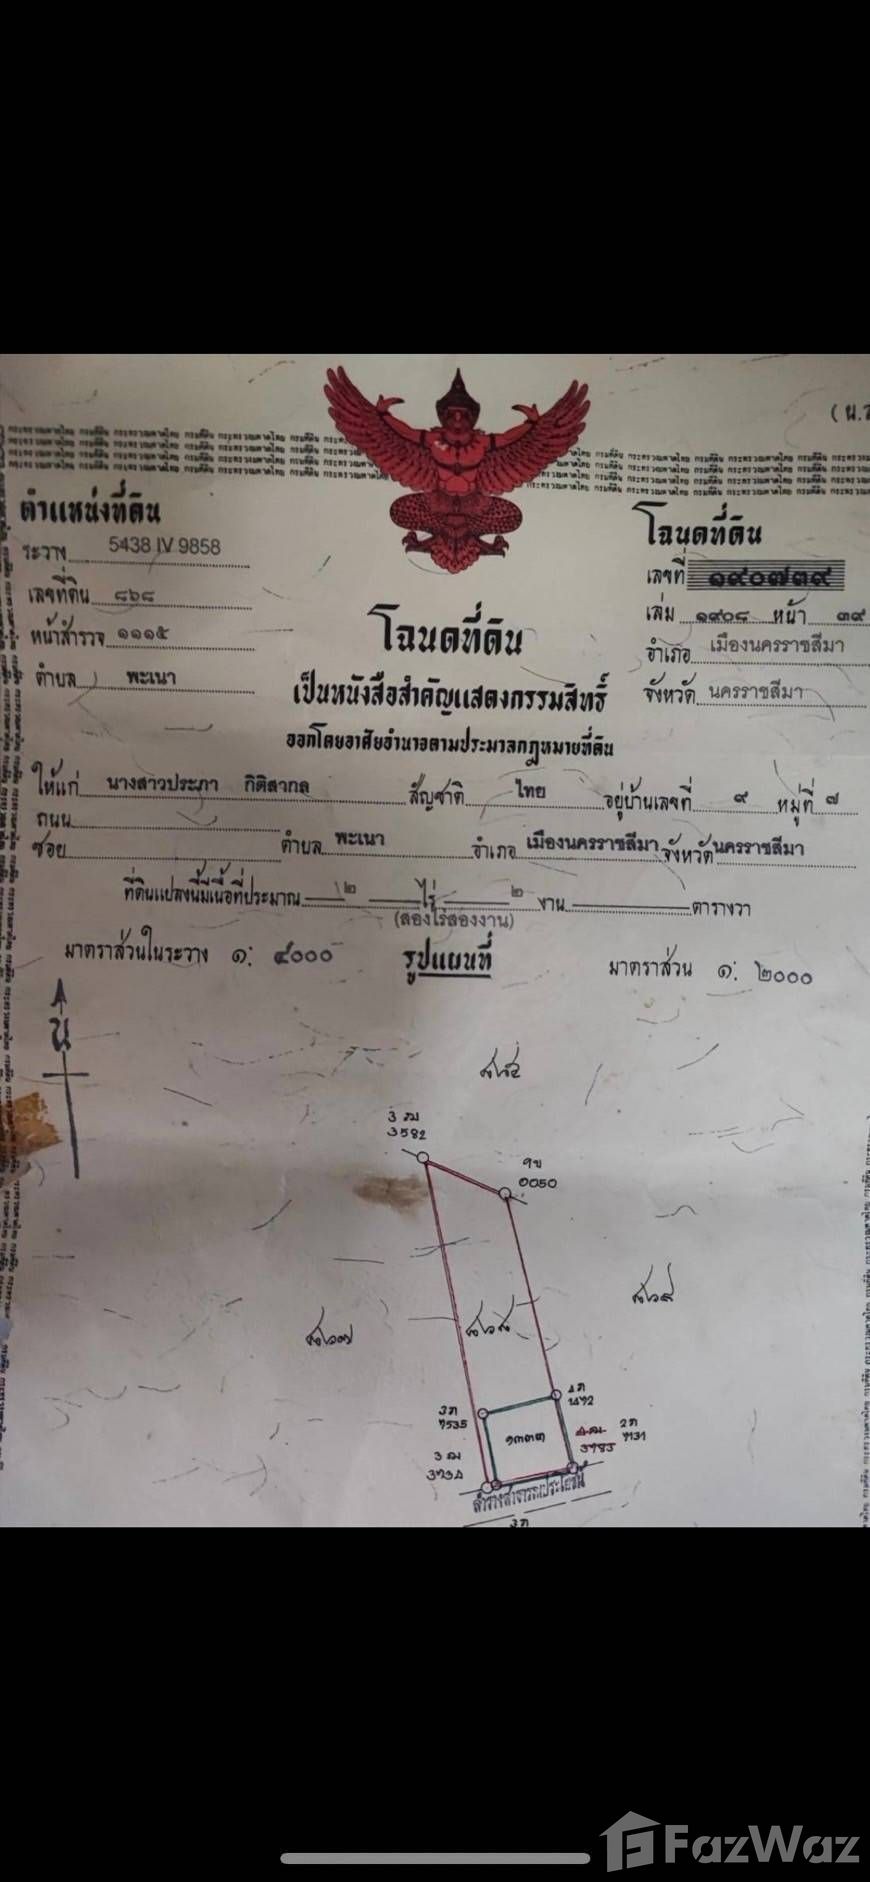 ( น.ส
ตำแหน่งที่ดิน
ระวาง 5438 IV 9858
เลขที่ดิน ๘๖๘
หน้าสำรวจ ๑๑๑๕
ตำบล พะเนา
โฉนดที่ดิน
เลขที่ ๑๙๐๗๓๙
เล่ม ๑๙๐๘ หน้า ๓๙
อำเภอ เมืองนครราชสีมา
จังหวัด นครราชสีมา
โฉนดที่ดิน
เป็นหนังสือสำคัญแสดงกรรมสิทธิ์
ออกโดยอาศัยอำนาจตามประมวลกฎหมายที่ดิน
ให้แก่ นางสาวประภา กิติสากล สัญชาติ ไทย อยู่บ้านเลขที่ ๙ หมู่ที่ ๗
ถนน
ซอย ตำบล พะเนา อำเภอ เมืองนครราชสีมา จังหวัด นครราชสีมา
ที่ดินแปลงนี้มีเนื้อที่ประมาณ ๒ ไร่ ๒ งาน ตารางวา
(สองไร่สองงาน)
มาตราส่วนในระวาง ๑: ๔๐๐๐ รูปแผนที่ มาตราส่วน ๑: ๒๐๐๐
น
3582
0050
๘๖๗
๘๖๘
๘๖๙
7535
๑๓๓๓
7131
ลำรางสาธารณประโยชน์
FazWaz